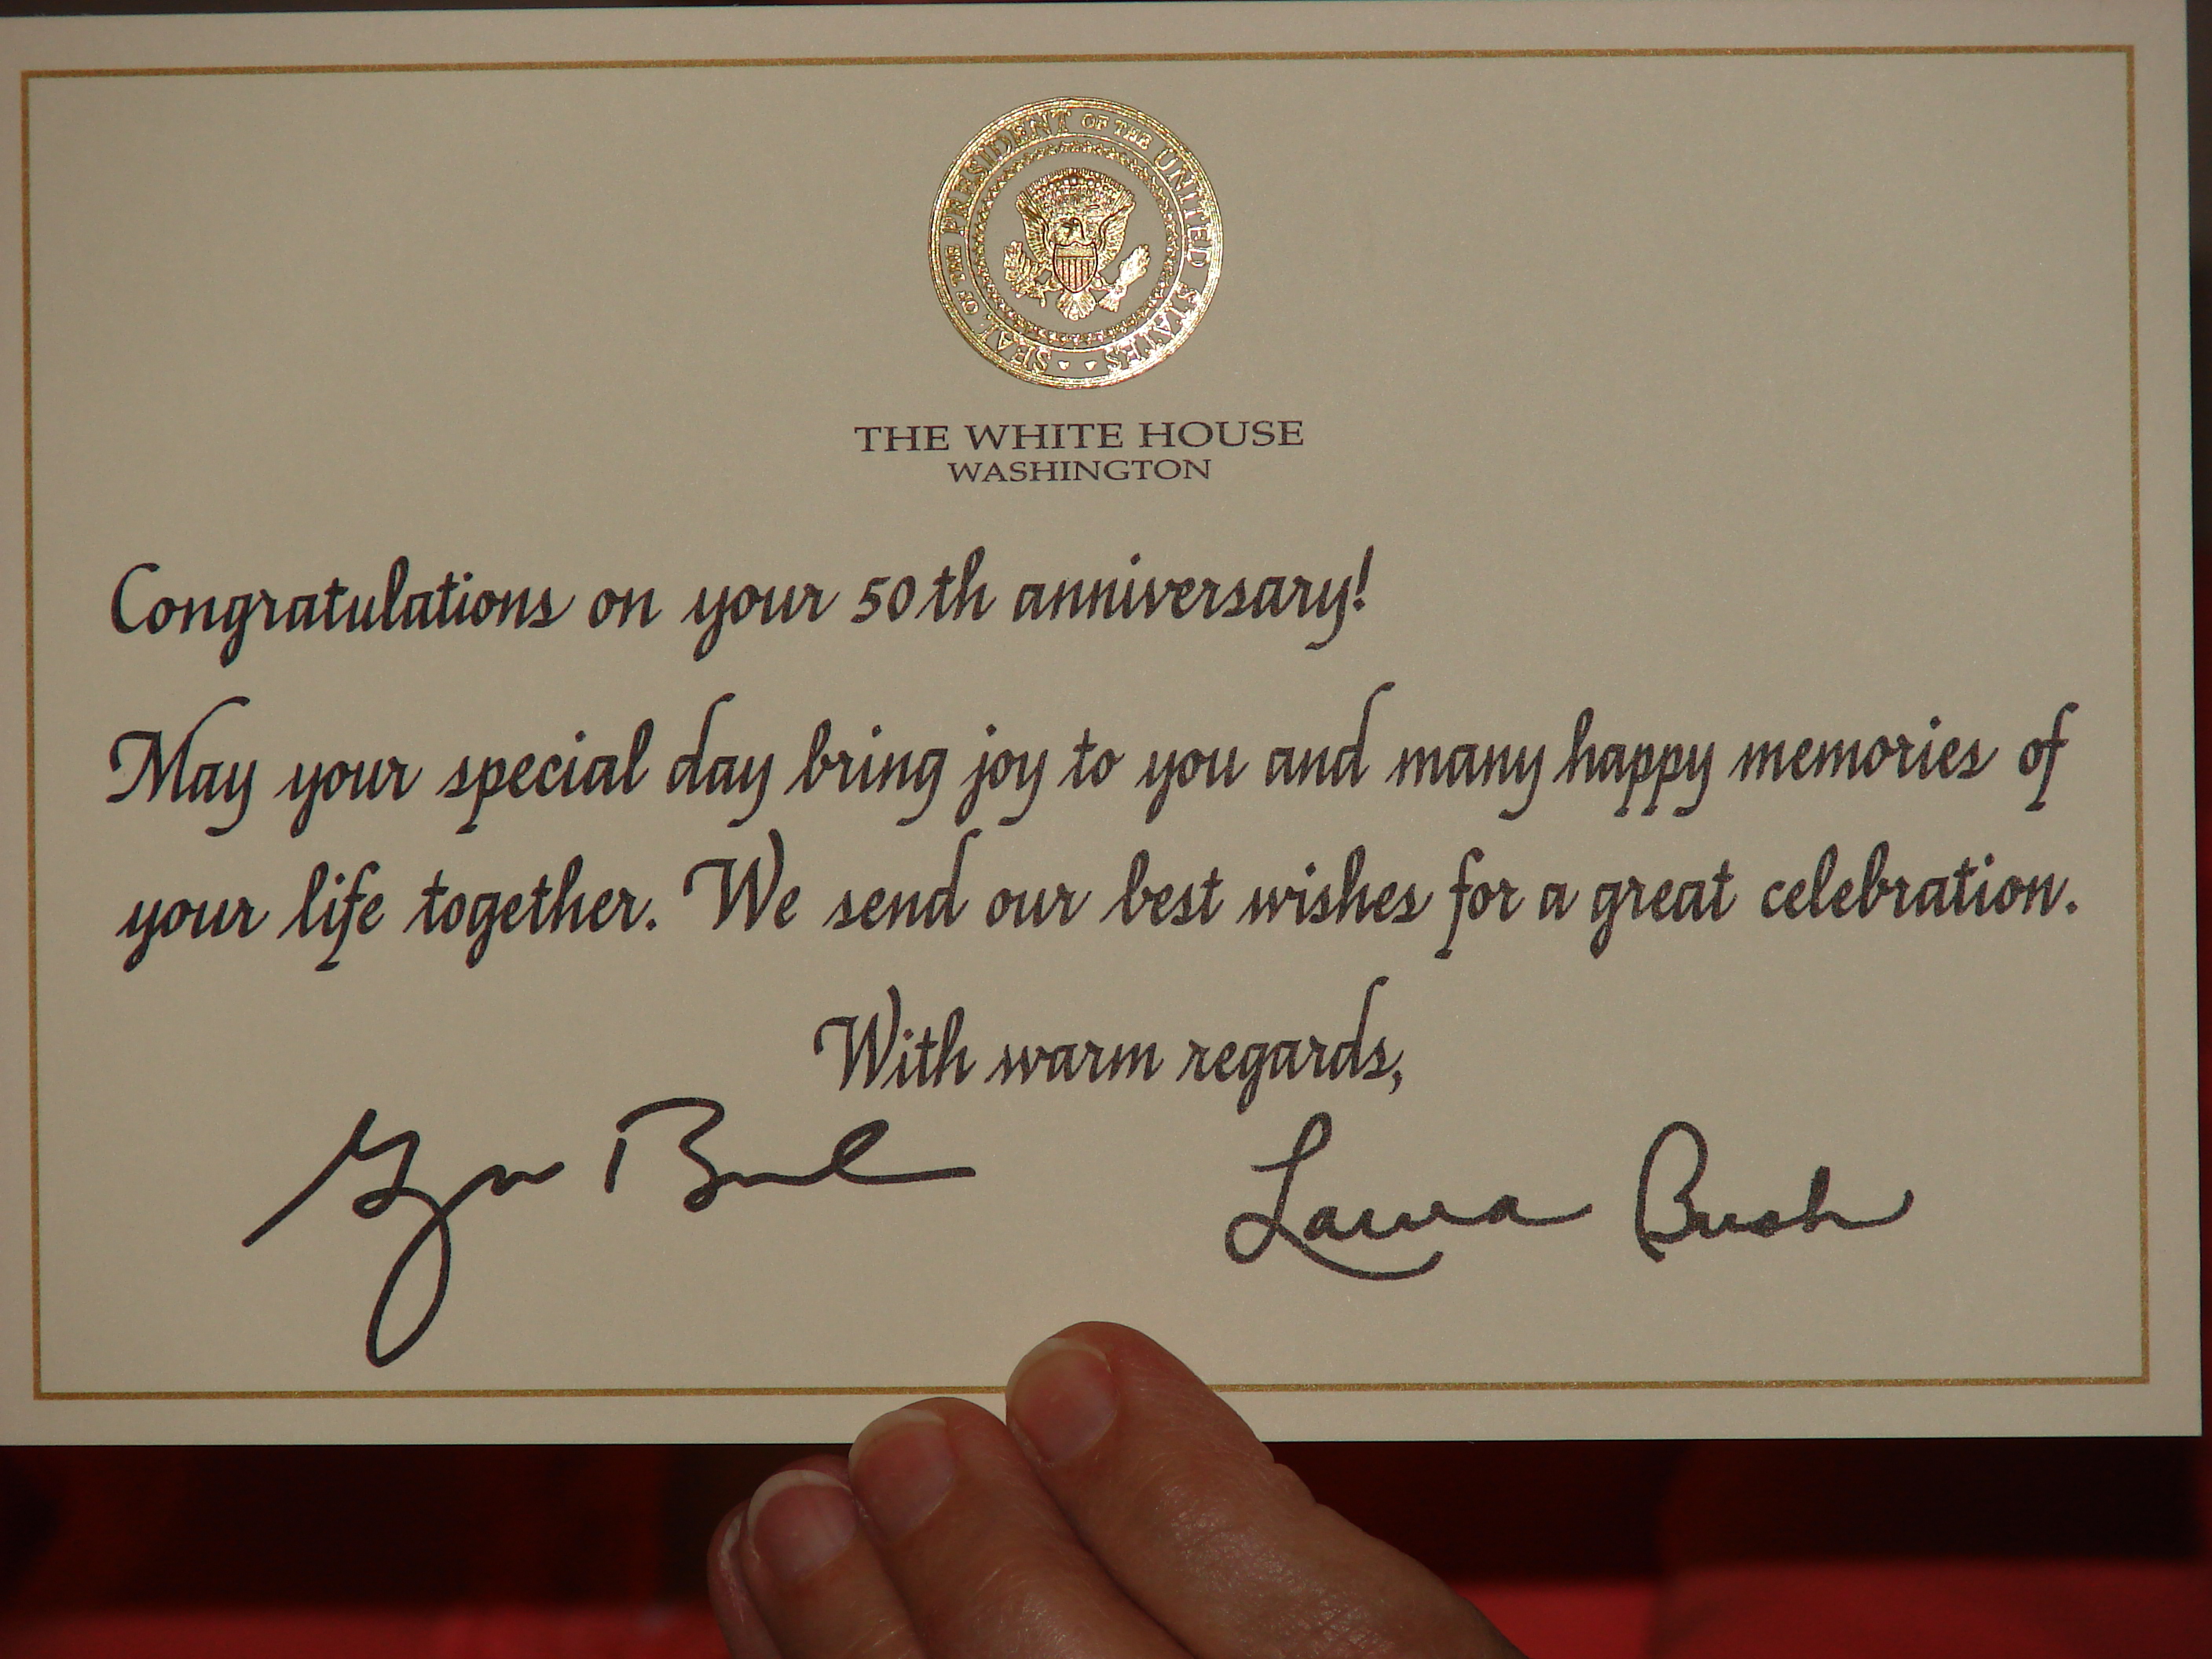 SEAL OF THE PRESIDENT OF THE UNITED STATES
THE WHITE HOUSE
WASHINGTON
Congratulations on your 50th anniversary!
May your special day bring joy to you and many happy memories of
your life together. We send our best wishes for a great celebration.
With warm regards,
George Bush Laura Bush